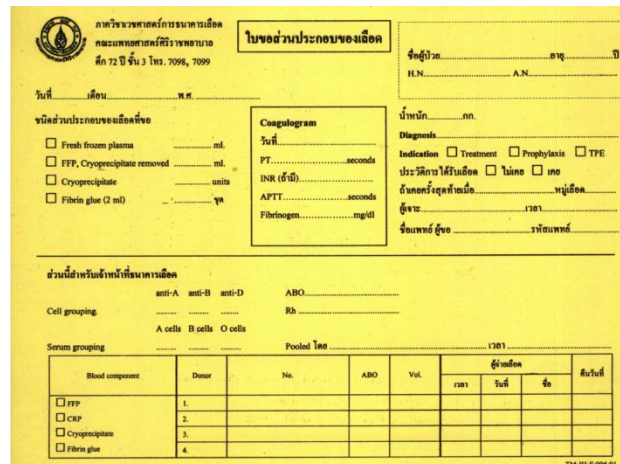 ภาควิชาเวชศาสตร์การธนาคารเลือด
คณะแพทยศาสตร์ศิริราชพยาบาล
ตึก 72 ปี ชั้น 3 โทร. 7098, 7099
ใบขอส่วนประกอบของเลือด
ชื่อผู้ป่วย..............................อายุ...............ปี
H.N..............................A.N..............................
วันที่...............เดือน..............................พ.ศ...............
ชนิดส่วนประกอบของเลือดที่ขอ
Fresh frozen plasma ............... ml.
FFP, Cryoprecipitate removed ............... ml.
Cryoprecipitate ............... units
Fibrin glue (2 ml) ............... ชุด
Coagulogram
วันที่..............................
PT..............................seconds
INR (ถ้ามี)..............................
APTT..............................seconds
Fibrinogen...............mg/dl
น้ำหนัก...............กก.
Diagnosis..............................
Indication Treatment Prophylaxis TPE
ประวัติการได้รับเลือด ไม่เคย เคย
ถ้าเคยครั้งสุดท้ายเมื่อ..............................หมู่เลือด...............
ผู้เจาะ..............................เวลา...............
ชื่อแพทย์ ผู้ขอ ..............................รหัสแพทย์...............
ส่วนนี้สำหรับเจ้าหน้าที่ธนาคารเลือด
anti-A anti-B anti-D ABO..............................
Cell grouping. ......... ......... ......... Rh ..............................
A cells B cells O cells
Serum grouping ......... ......... ......... Pooled โดย .............................. เวลา ...............
Blood component Donor No. ABO Vol. ผู้จ่ายเลือด คืนวันที่
เวลา วันที่ ชื่อ
FFP 1.
CRP 2.
Cryoprecipitate 3.
Fibrin glue 4.